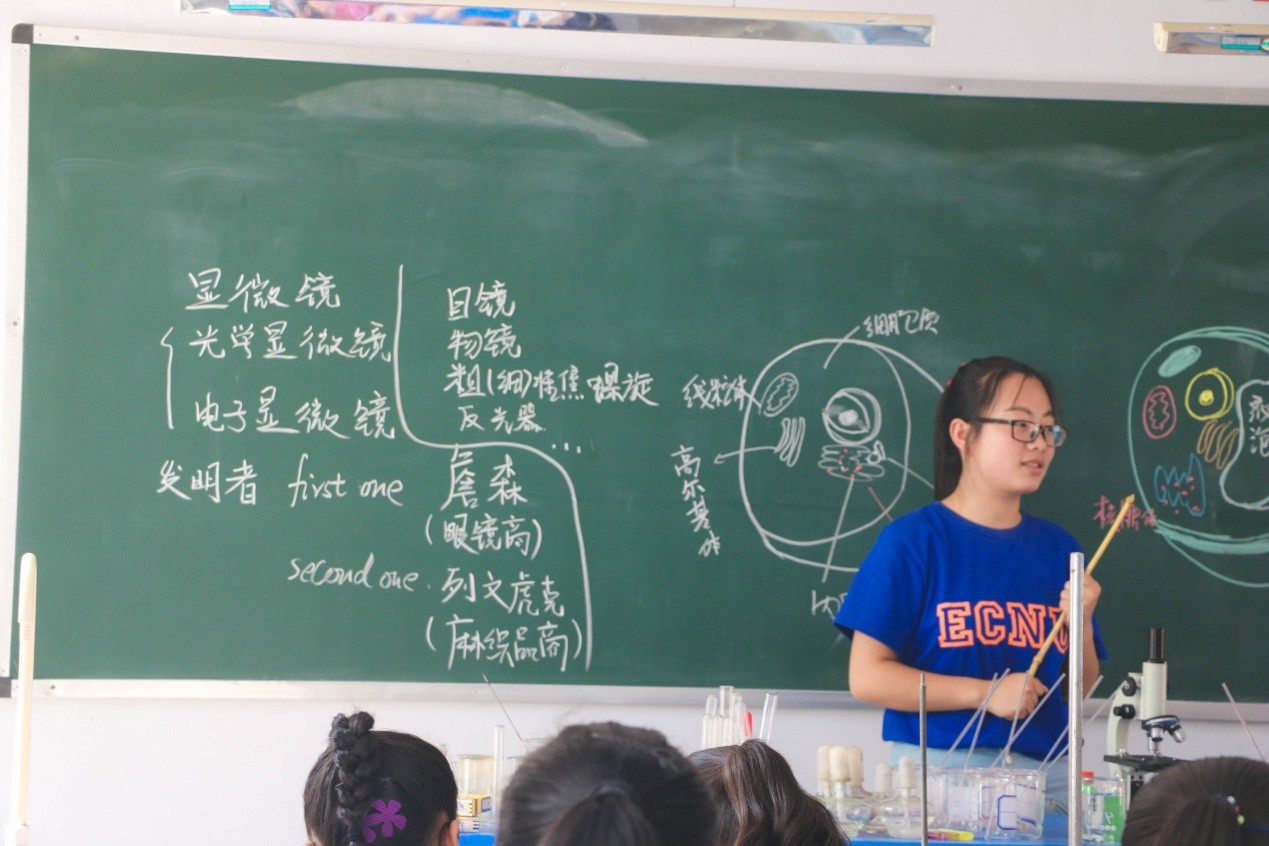 显微镜
光学显微镜
电子显微镜
发明者 first one 詹森
(眼镜商)
second one. 列文虎克
(麻织品商)
目镜
物镜
粗(细)准焦螺旋
反光器
...
细胞质
线粒体
高尔基体
ECNU
核糖体
液泡